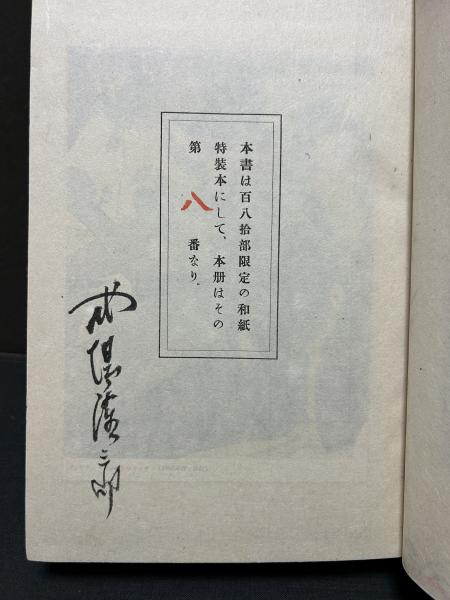 本書は百八拾部限定の和紙
特裝本にして、本册はその
第 八 番なり。